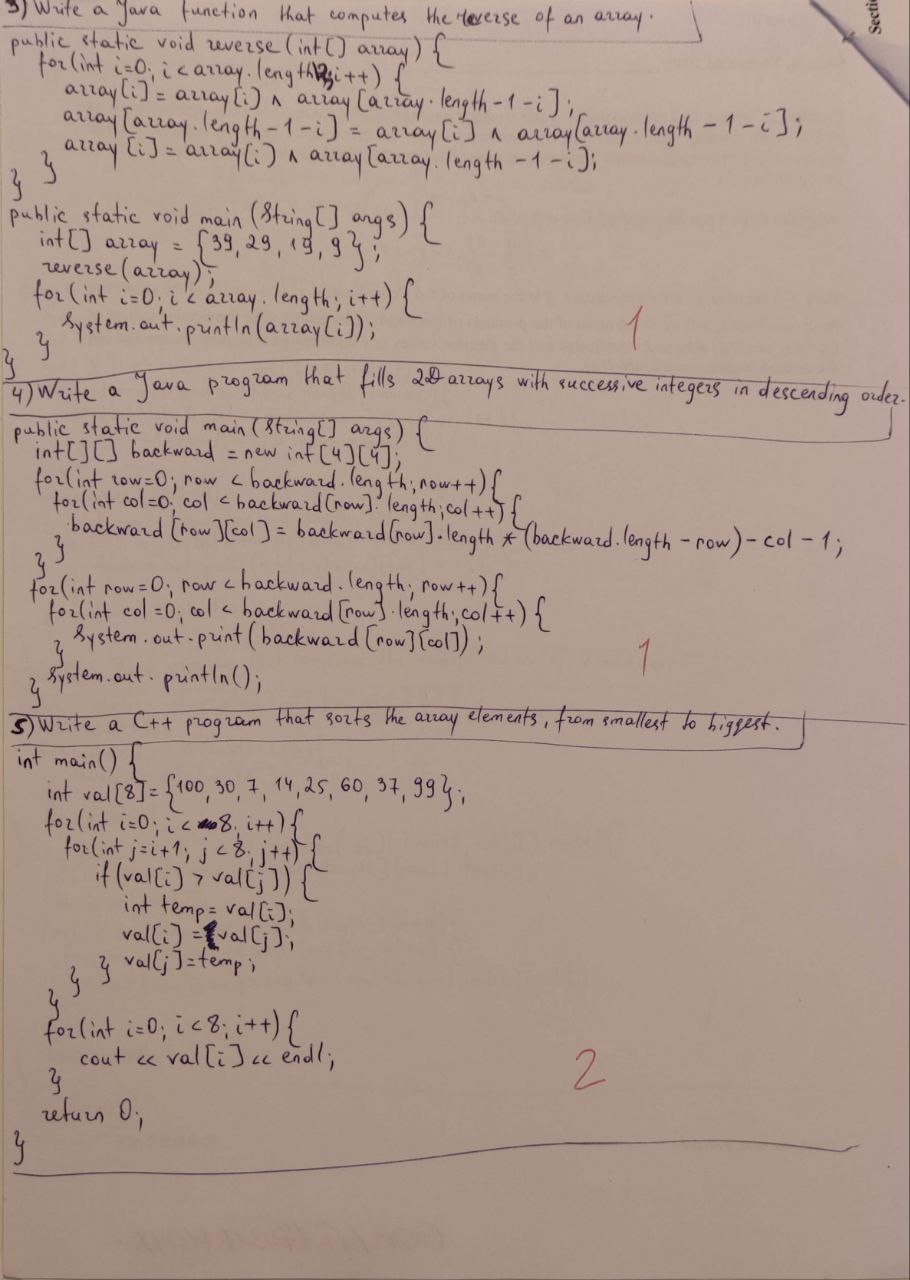 3) Write a Java function that computes the reverse of an array.
Secti
public static void reverse (int[] array) {
for(int i=0; i<array.length/2; i++) {
array[i] = array[i] ^ array[array.length-1-i];
array[array.length-1-i] = array[i] ^ array[array.length-1-i];
array[i] = array[i] ^ array[array.length-1-i];
}
}
public static void main (String[] args) {
int[] array = {39, 29, 19, 9};
reverse(array);
for(int i=0; i< array.length; i++) {
System.out.println(array[i]);
1
}
}
4) Write a Java program that fills 2D arrays with successive integers in descending order.
public static void main (String[] args) {
int[][] backward = new int[4][4];
for(int row=0; row < backward.length; row++){
for(int col=0; col < backward[row].length; col++){
backward[row][col] = backward[row].length * (backward.length - row) - col - 1;
}
}
for(int row=0; row < backward.length; row++){
for(int col=0; col < backward[row].length; col++) {
System.out.print(backward[row][col]);
1
}
System.out.println();
}
5) Write a C++ program that sorts the array elements, from smallest to biggest.
int main() {
int val[8]= {100, 30, 7, 14, 25, 60, 37, 99};
for(int i=0; i< 8; i++){
for(int j=i+1; j<8; j++) {
if(val[i] > val[j]) {
int temp= val[i];
val[i] = val[j];
val[j]=temp;
} }
}
for(int i=0; i<8; i++) {
cout << val[i] << endl;
2
}
return 0;
}